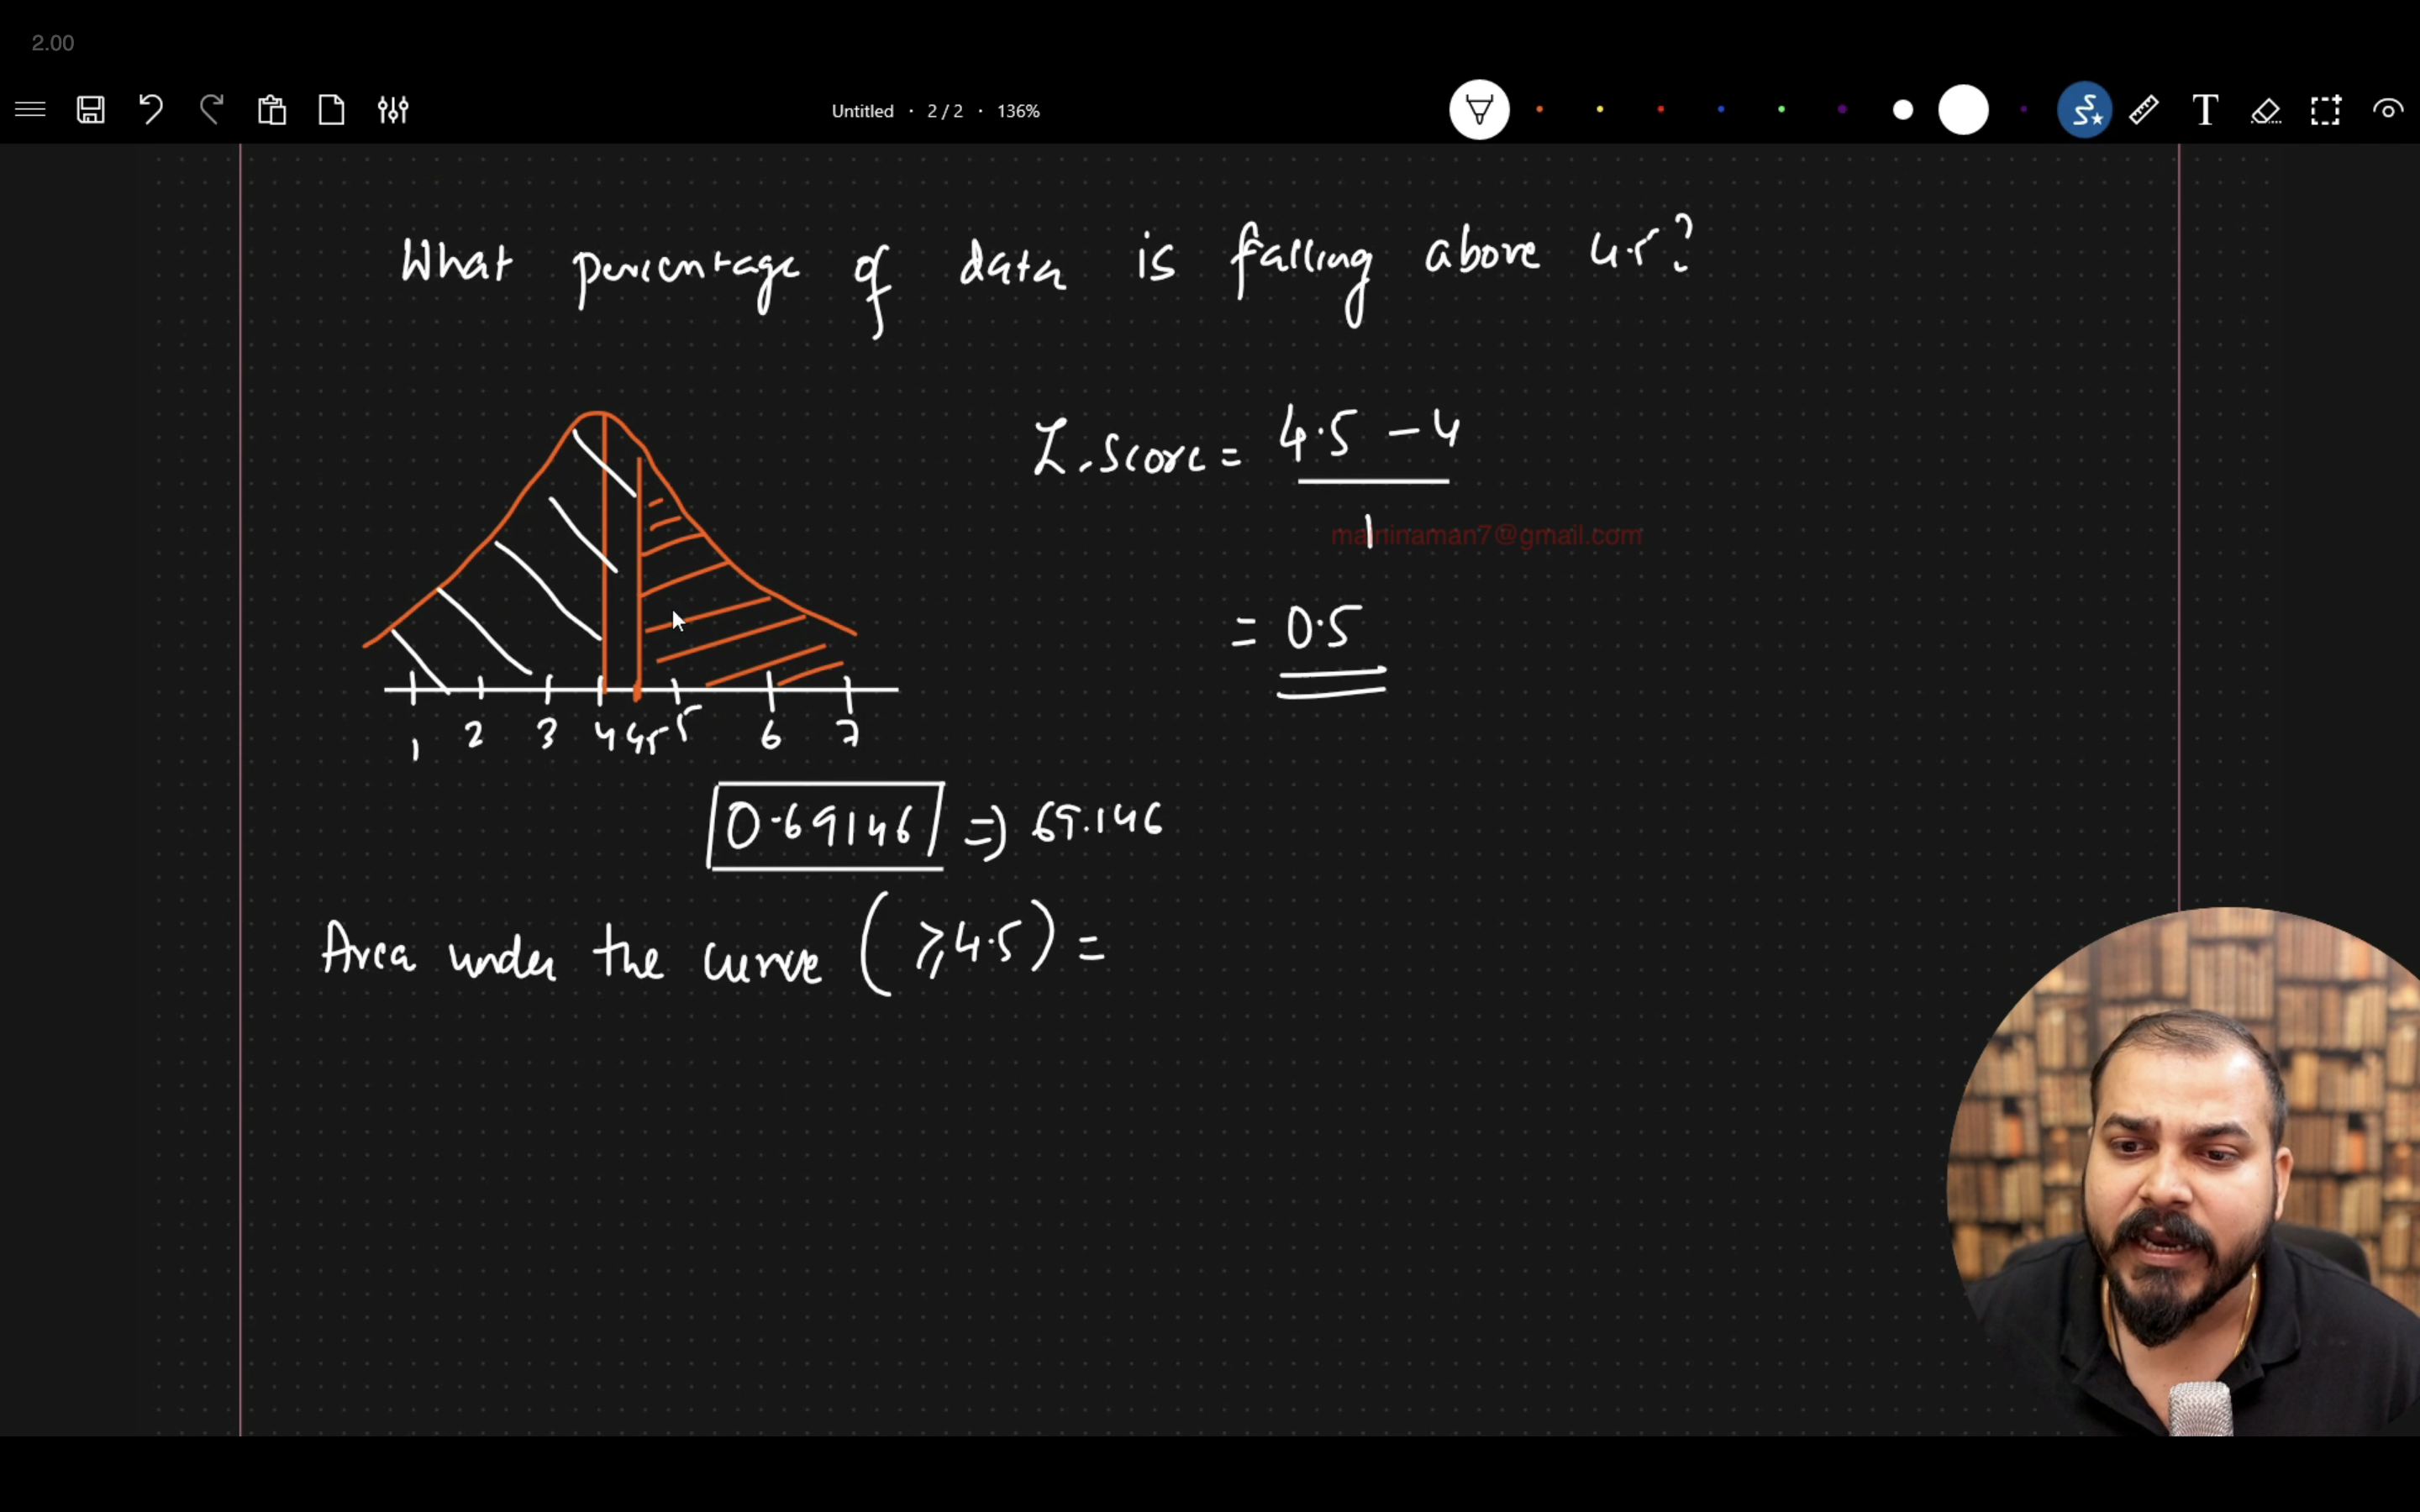 2.00
Untitled · 2 / 2 · 136%
T
What percentage of data is falling above 4.5?
Z.Score = 4.5 - 4
1
= 0.5
1 2 3 4 4.5 5 6 7
0.69146 => 69.146
Area under the curve (≥4.5) =